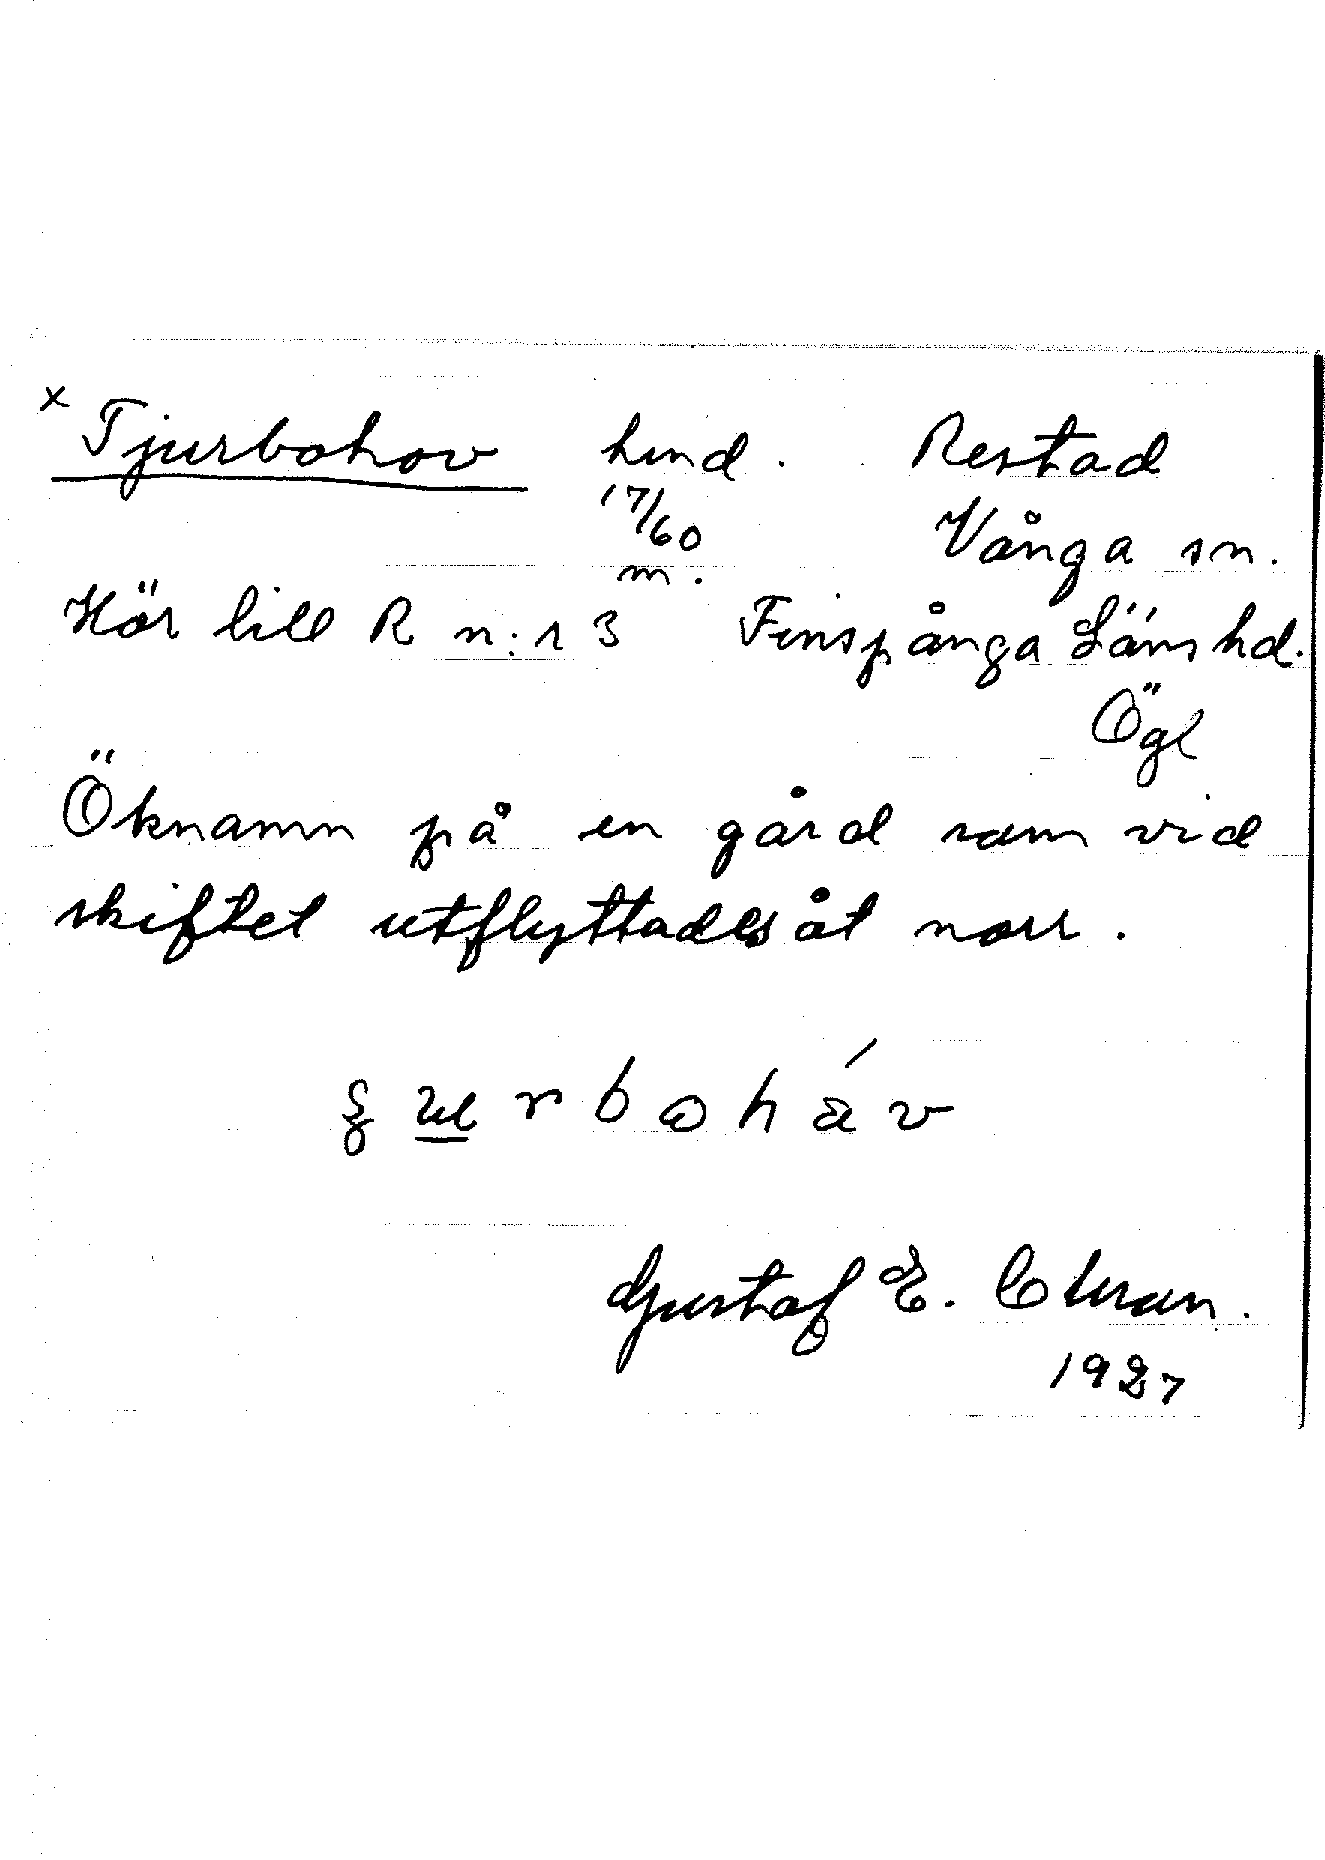 x Tjurbohov hmd. Restad
17/60 Vånga sn.
m.
Hör till R n:r 3 Finspånga Läns hd.
Ögl
Öknamn på en gård som vid
skiftet utflyttades åt norr.
Gustaf E.
1927